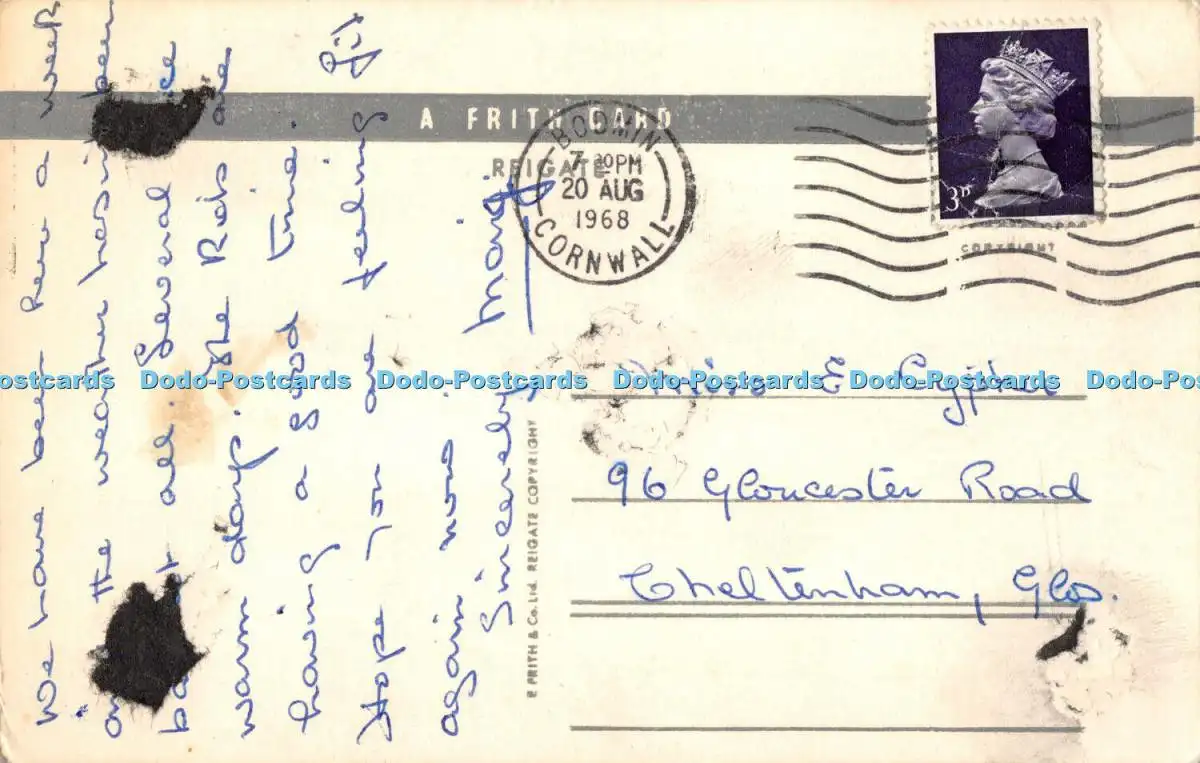 A FRITH CARD
REIGATE
BODMIN
7 30PM
20 AUG
1968
CORNWALL
3D
COPYRIGHT
We have been here a week
the weather hasn't been
at all. Several
warm days. The Robs are
having a good time.
Hope you are feeling fit
again now.
Sincerely
F. FRITH & Co. Ltd. REIGATE COPYRIGHT
Miss E
96 Gloucester Road
Cheltenham, Glos.
Dodo-Postcards Dodo-Postcards Dodo-Postcards Dodo-Postcards Dodo-Postcards